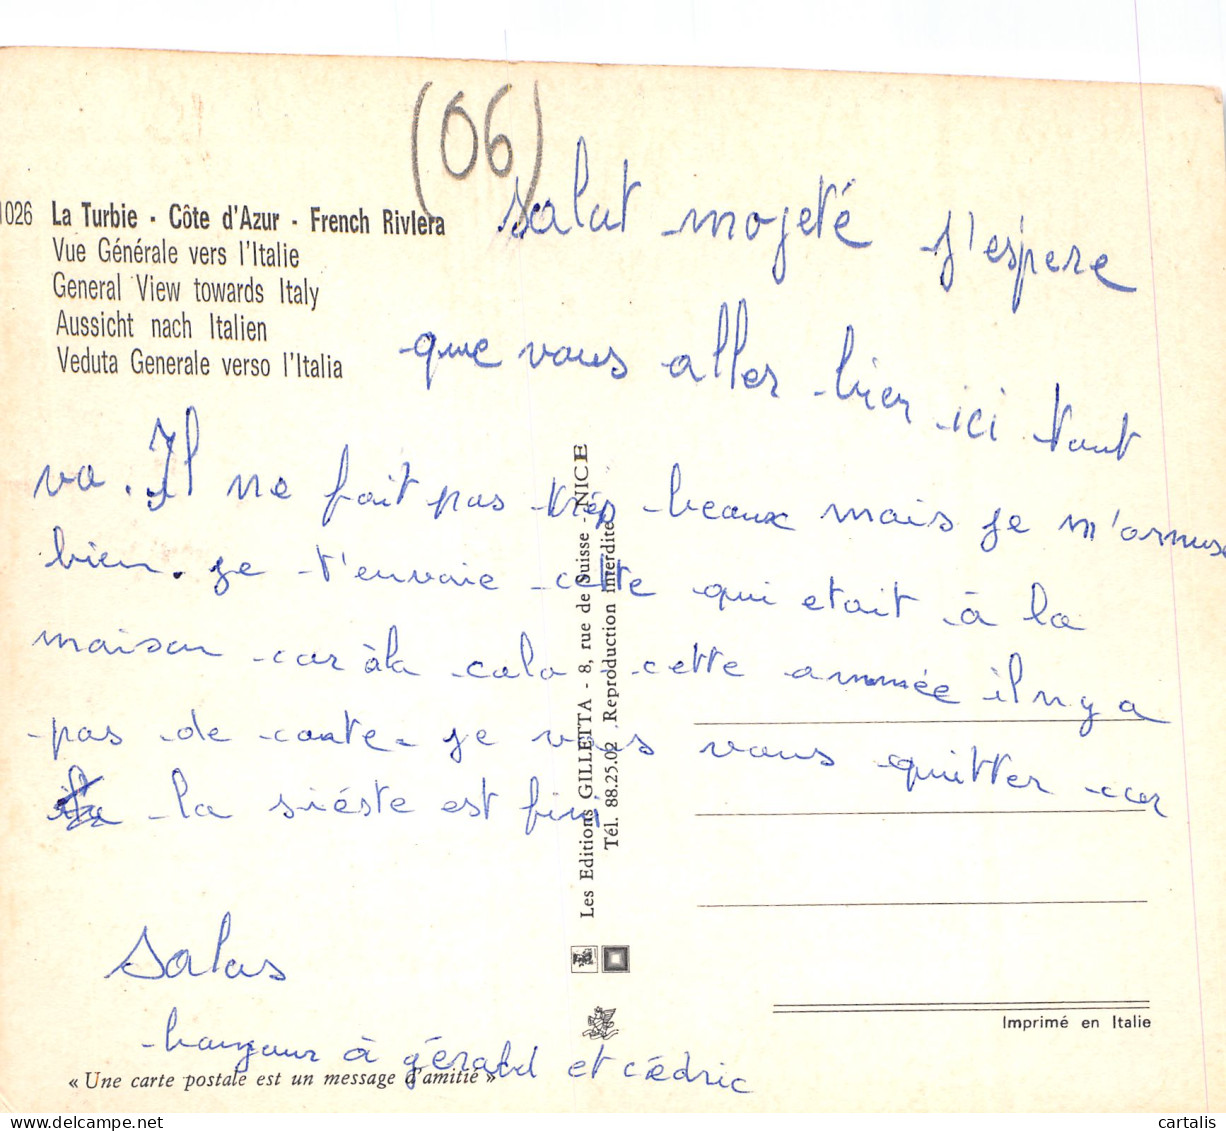 (06)
1026 La Turbie - Côte d'Azur - French Riviera
Vue Générale vers l'Italie
General View towards Italy
Aussicht nach Italien
Veduta Generale verso l'Italia
salut mojeté j'espere
que vous aller bien ici tout
va. Il ne fait pas très beaux mais je m'amuse
bien. je t'envoie cette qui etait à la
maison car à la colo cette année il n y a
pas de carte. je vais vous quitter car
la siéste est fini
Salas
bonjour à gérald et cédric
Les Editions GILLETTA - 8, rue de Suisse - NICE
Tél. 88.25.02 Reproduction interdite
Imprimé en Italie
« Une carte postale est un message d'amitié »
cartalis